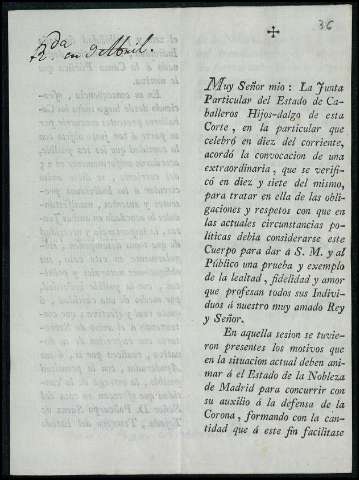 36
R.da en 9 Abril.
✢
Muy Señor mio: La Junta
Particular del Estado de Ca-
balleros Hijos-dalgo de esta
Corte, en la particular que
celebró en diez del corriente,
acordó la convocacion de una
extraordinaria, que se verifi-
có en diez y siete del mismo,
para tratar en ella de las obli-
gaciones y respetos con que en
las actuales circunstancias po-
líticas debia considerarse este
Cuerpo para dar á S. M. y al
Público una prueba y exemplo
de la lealtad, fidelidad y amor
que profesan todos sus Indivi-
duos á nuestro muy amado Rey
y Señor.
En aquella sesion se tuvie-
ron presentes los motivos que
en la situacion actual deben ani-
mar á el Estado de la Nobleza
de Madrid para concurrir con
su auxîlio á la defensa de la
Corona, formando con la can-
tidad que á este fin facilitase